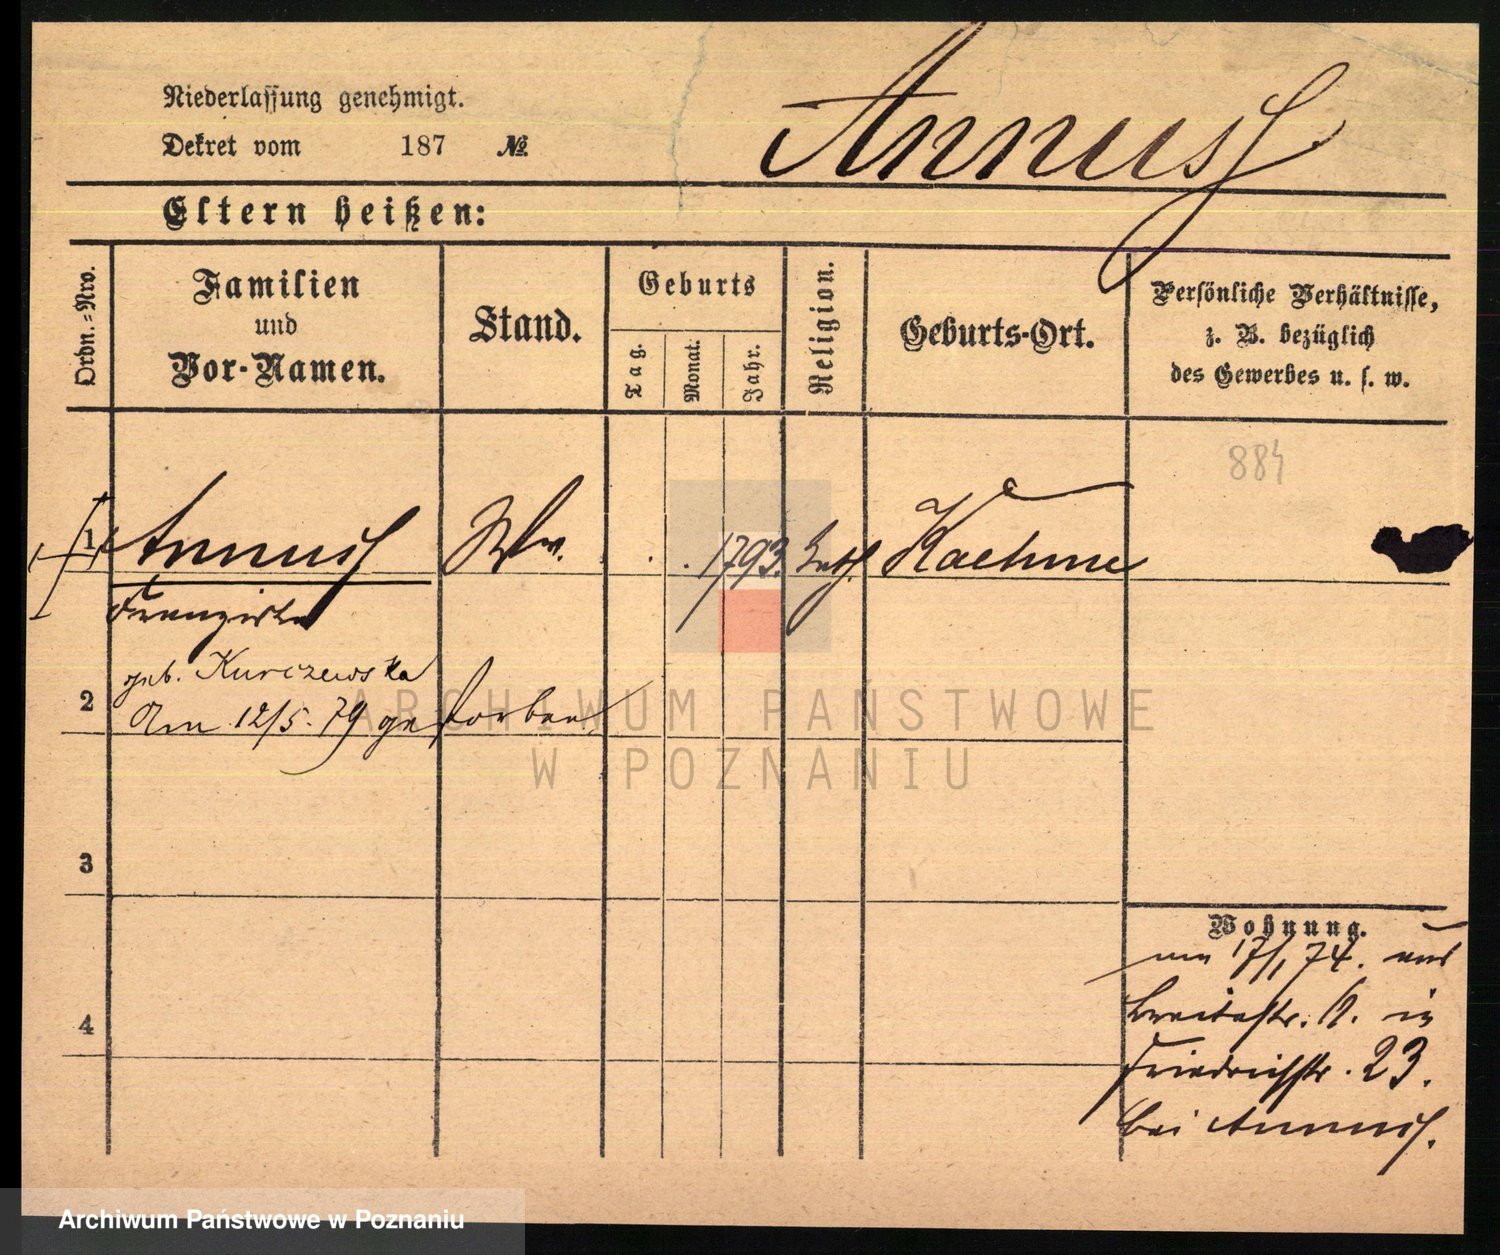 Niederlassung genehmigt.
Dekret vom 187 №
Annuss
Eltern heißen:
Ordn.-Nro.
Familien
und
Vor-Namen.
Stand.
Geburts
Tag.
Monat.
Jahr.
Religion.
Geburts-Ort.
Persönliche Verhältnisse,
z. B. bezüglich
des Gewerbes u. s. w.
884
1 Annuss Ww. 1793. kath.
Franziska
geb. Kurczewska
2 Am 12/5. 79 gestorben
3
4
Wohnung.
am 17/1 74. aus
Breitestr. in
Friedrichstr. 23.
bei Annuss.
ARCHIWUM PAŃSTWOWE
W POZNANIU
Archiwum Państwowe w Poznaniu